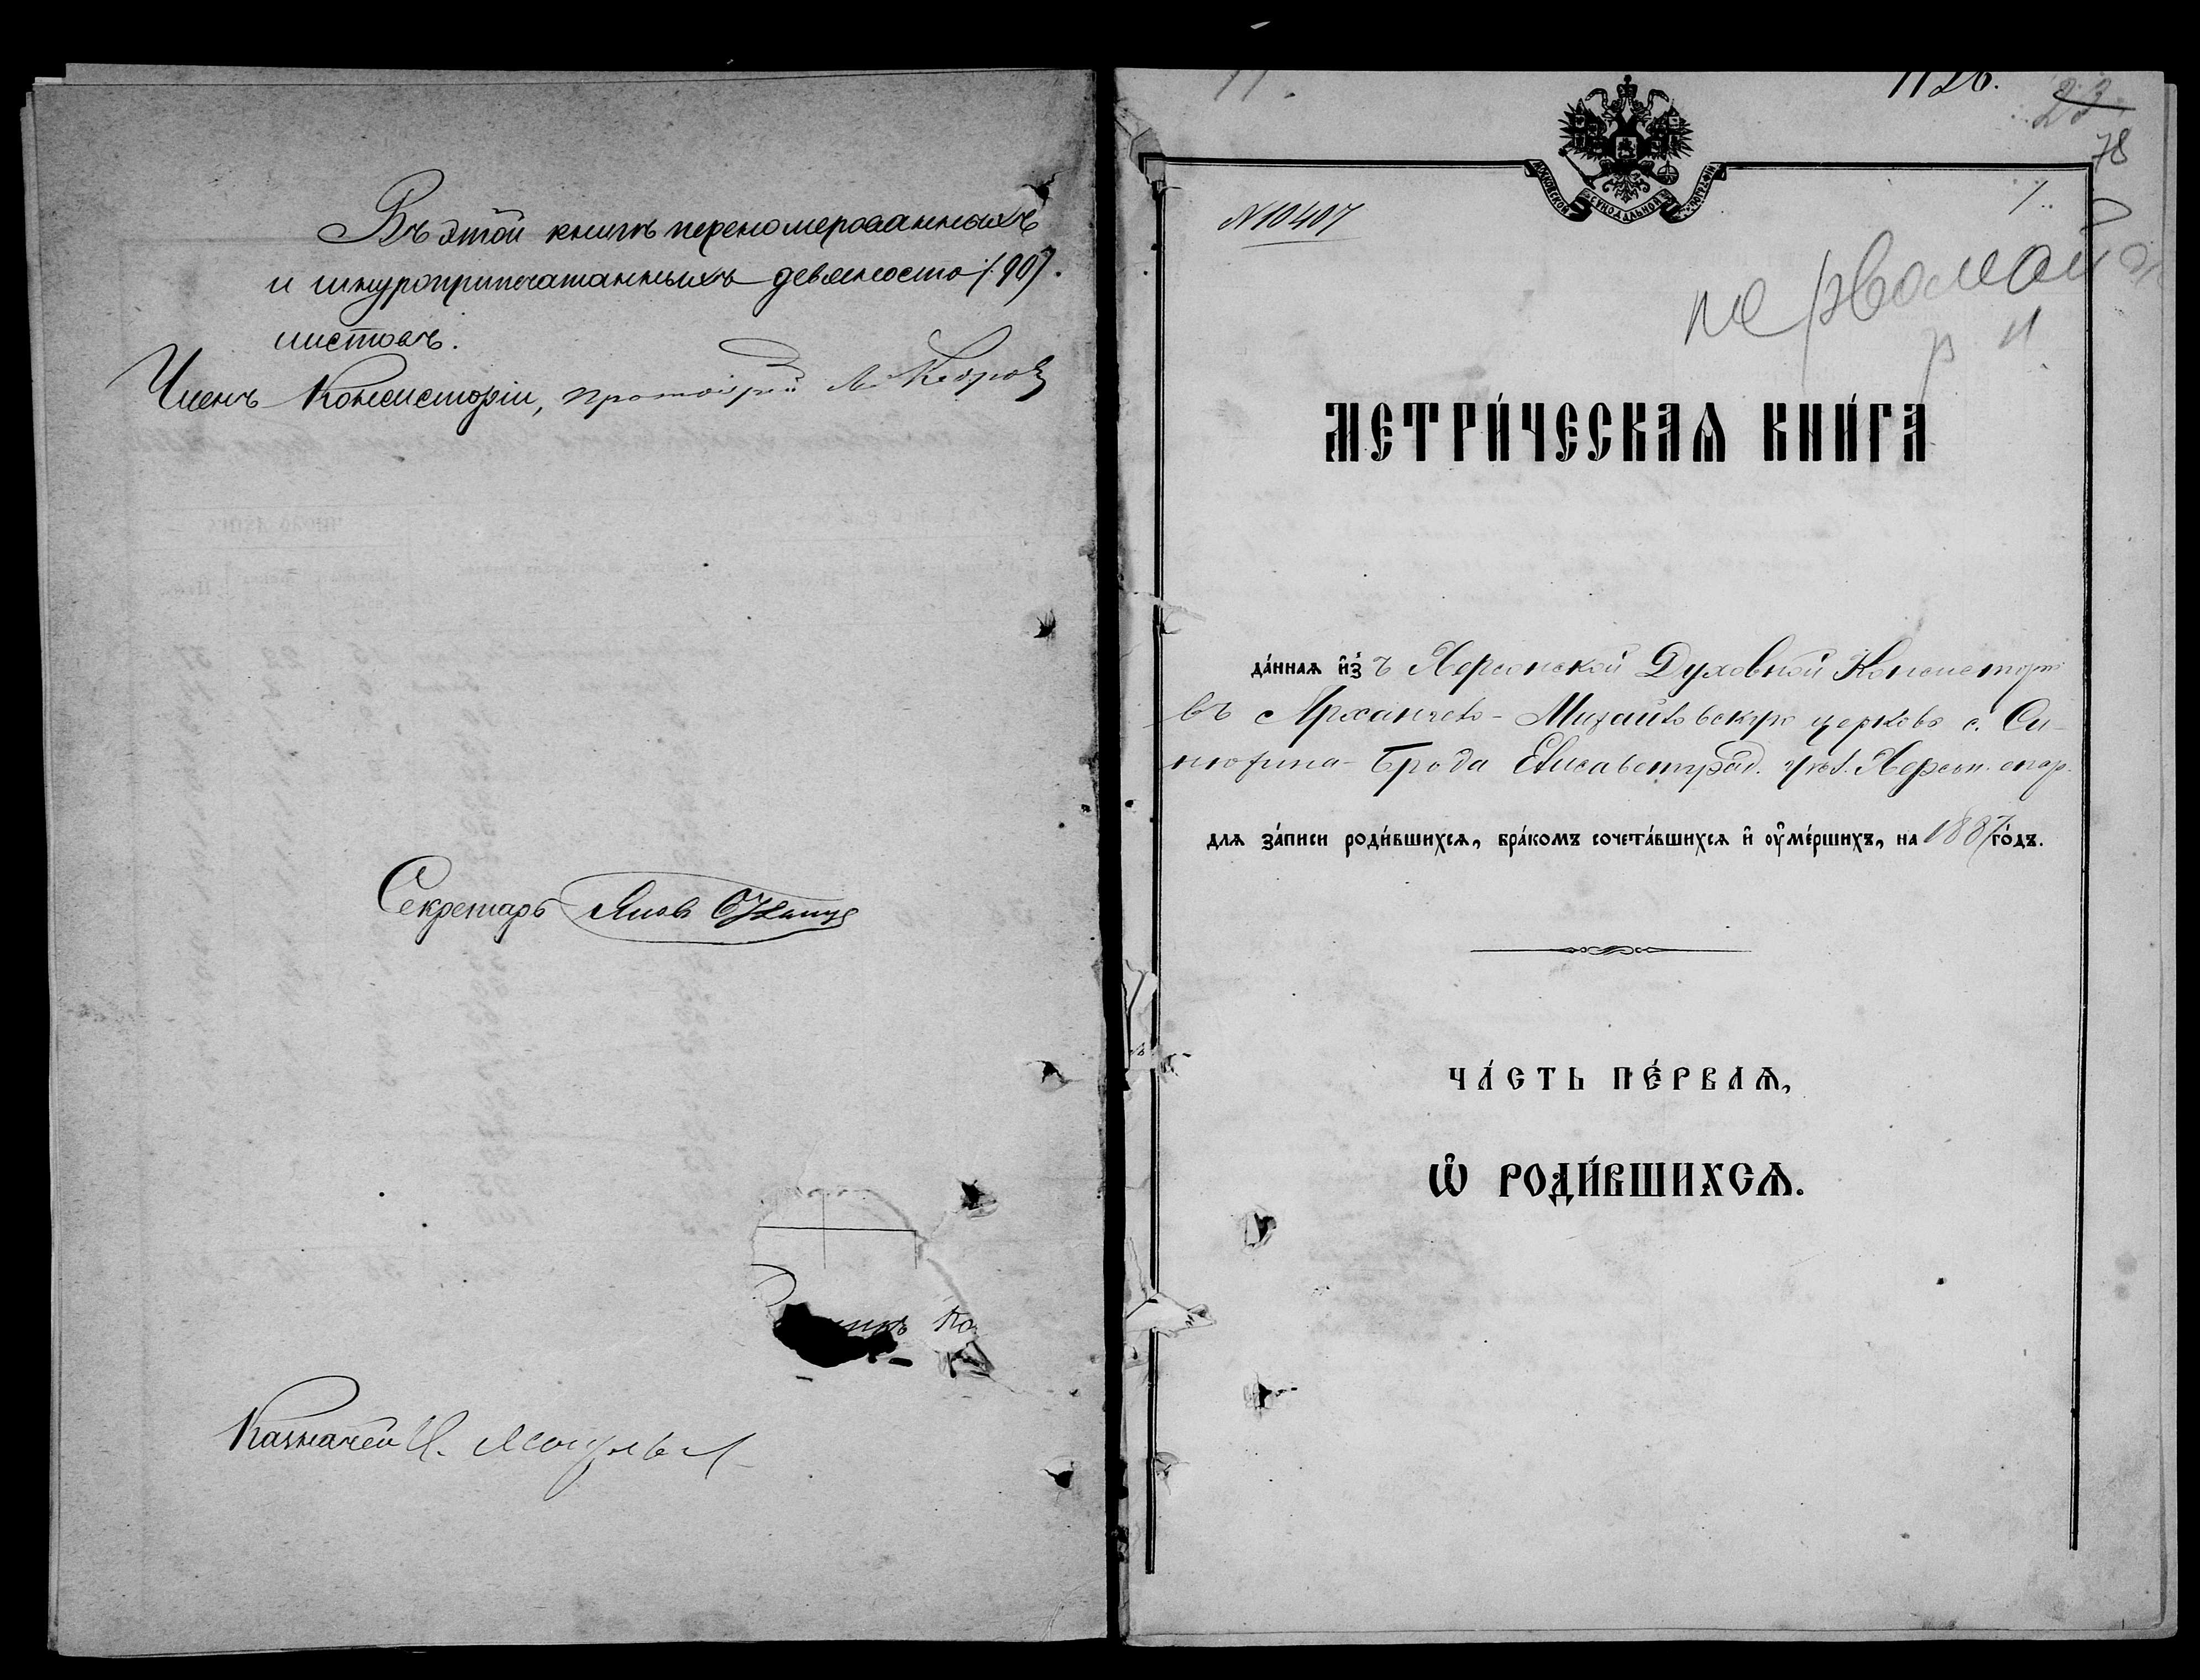 Въ этой книгѣ перенумерованныхъ
и шнуроприпечатанныхъ девяносто /90/.
листовъ.
Членъ Консисторіи, протоіерей
Секретарь
Казначей
1126.
23
78
МОСКОВСКОЙ СѴНОДАЛЬНОЙ ТИПОГРАФІИ
1.
№ 10407
первомай
р н
МЕТРИ́ЧЕСКАѦ КНИ́ГА
да́ннаѧ и҆́з ъ Херсонской Духовной Консисторіи
въ Архангело-Михайловскую церковь с. Си-
нюхина-Брода Елисаветград. уѣз. Херсон. епар.
для за́писи роди́вшихсѧ, бра́комъ сочета́вшихсѧ и҆ ᲂу҆ме́ршихъ, на 1887 го́дъ.
ЧА́СТЬ ПЕ́РВАѦ,
Ѡ҆ РОДИ́ВШИХСѦ.